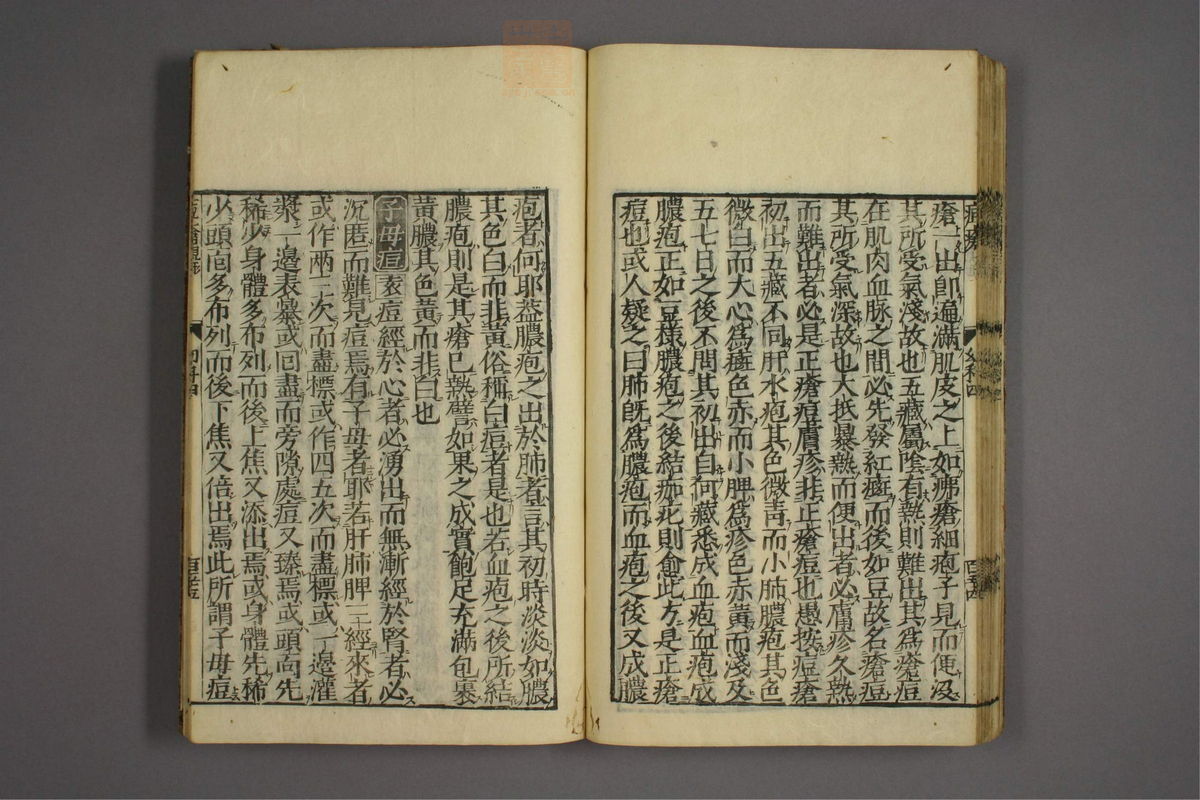 瘡一出卽遍滿肌皮之上如疿瘡細疱子見而便沒
其所受氣淺故也五藏屬陰有熱則難出其爲瘡痘
在肌肉血脉之間必先發紅癍而後如豆故名瘡痘
其所受氣深故也大抵暴熱而便出者必膚疹久熱
而難出者必是正瘡痘膚疹非正瘡痘也愚按痘瘡
初出五藏不同肝水疱其色微靑而小肺膿疱其色
微白而大心爲癍色赤而小脾爲疹色赤黃而淺及
五七日之後不問其初出自何藏悉成血疱血疱成
膿疱正如豆樣膿疱之後結痂疕則愈此方是正瘡
痘也或人疑之曰肺旣爲膿疱而血疱之後又成膿
疱者何耶蓋膿疱之出於肺者言其初時淡淡如膿
其色白而非黃俗稱白痘者是也若血疱之後所結
膿疱則是其瘡已熟譬如果之成實飽足充滿包裹
黃膿其色黃而非白也
子母痘 袁痘經於心者必湧出而無漸經於腎者必
沉匿而難見痘焉有子母者耶若肝肺脾三經來者
或作兩三次而盡標或作四五次而盡標或一邊灌
漿一邊表暴或囘盡而旁隙處痘又臻焉或頭向先
稀少身體多布列而後上焦又添出焉或身體先稀
少頭面多布列而後下焦又倍出焉此所謂子母痘
幼科四